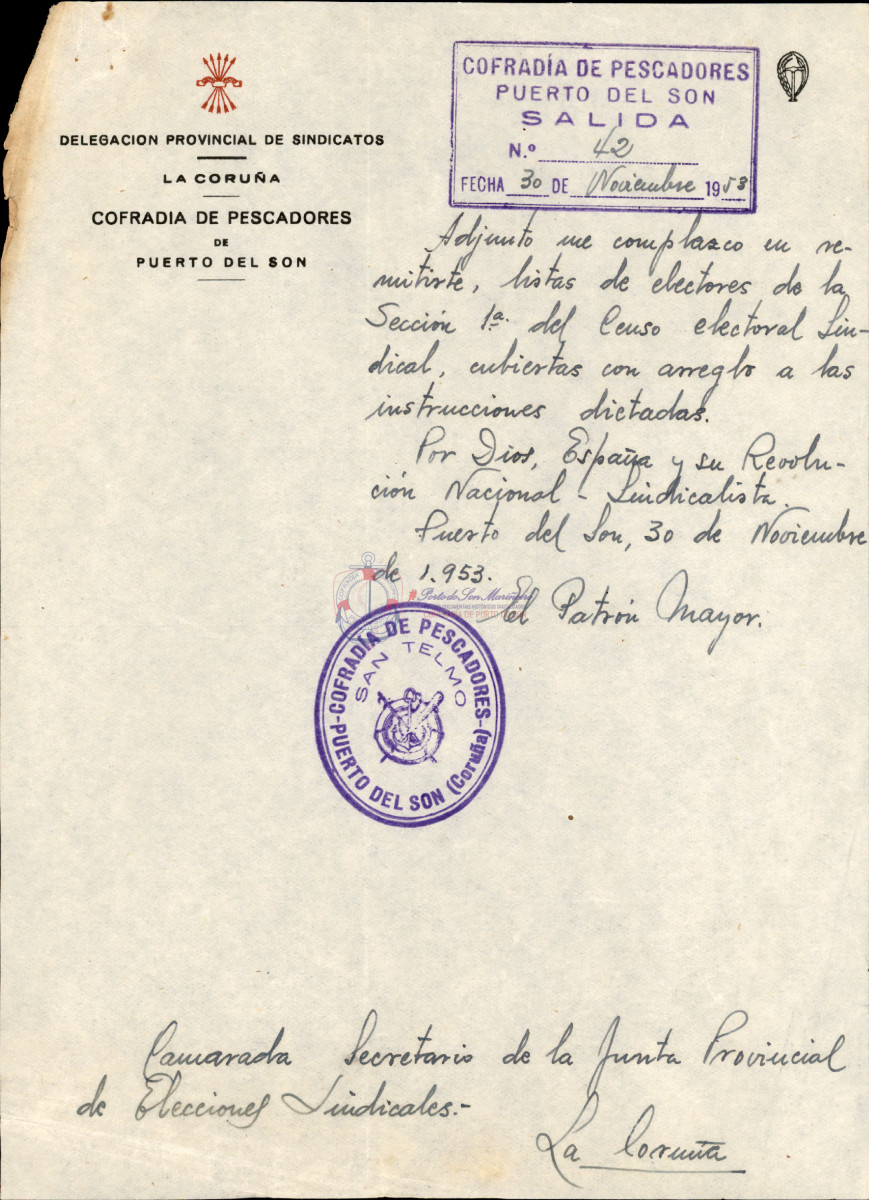 DELEGACION PROVINCIAL DE SINDICATOS
LA CORUÑA
COFRADIA DE PESCADORES
DE
PUERTO DEL SON
COFRADÍA DE PESCADORES
PUERTO DEL SON
SALIDA
N.º 42
FECHA 30 DE Noviembre 1953
Adjunto me complazco en re-
mitirte, listas de electores de la
Sección 1ª. del Censo electoral Sin-
dical, cubiertas con arreglo a las
instrucciones dictadas.
Por Dios, España y su Revolu-
ción Nacional-Sindicalista.
Puerto del Son, 30 de Noviembre
de 1.953.
El Patrón Mayor.
#PortodoSonMariñeiro
COFRADÍA DE PESCADORES
SAN TELMO
PUERTO DEL SON (Coruña)
Camarada Secretario de la Junta Provincial
de Elecciones Sindicales.-
La Coruña